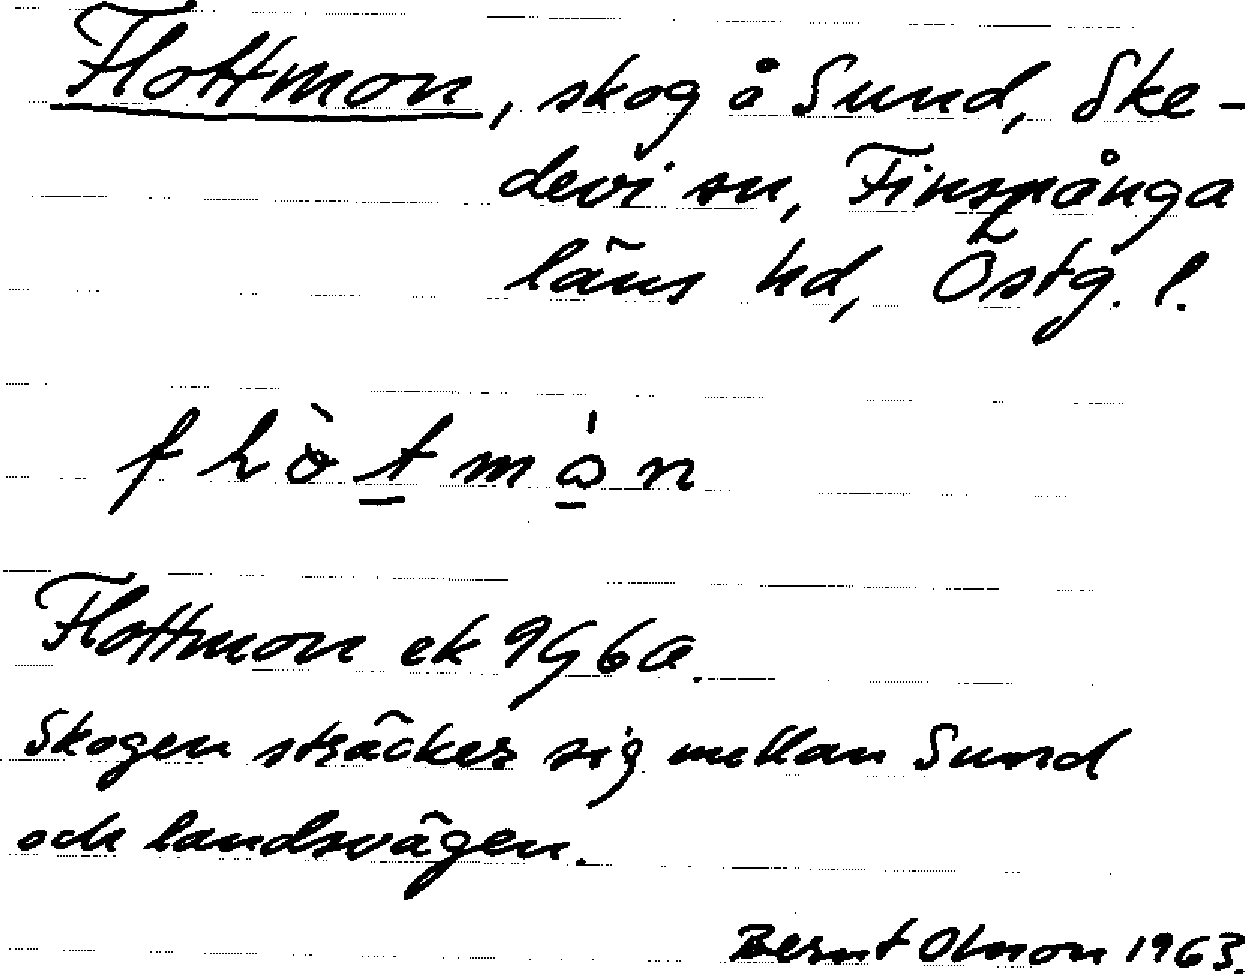 Flottmon, skog å Sund, Ske-
devi sn, Finspånga
läns hd, Östg. l.
Flottmon ek 9G6a.
Skogen sträcker sig mellan Sund
och landsvägen.
Bernt Olsson 1963.